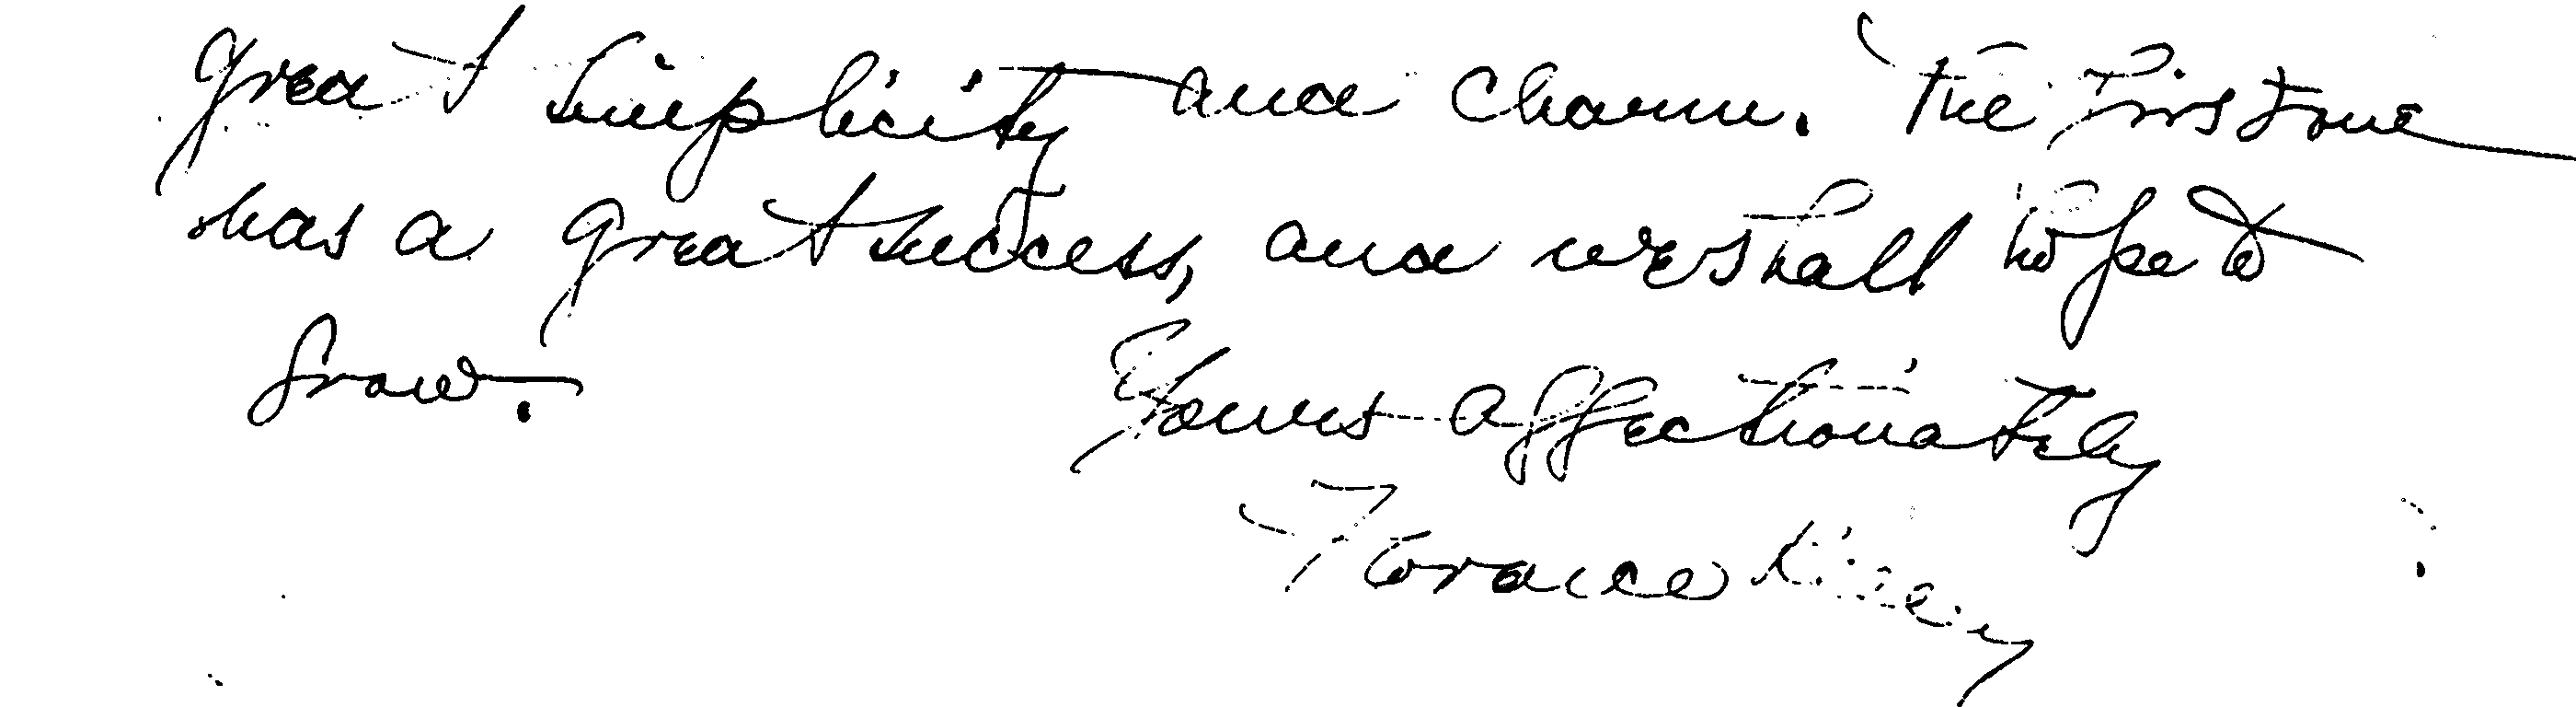 great simplicity and charm. The first one
was a great success, and we shall hope to
grow.
Yours affectionately
Horace